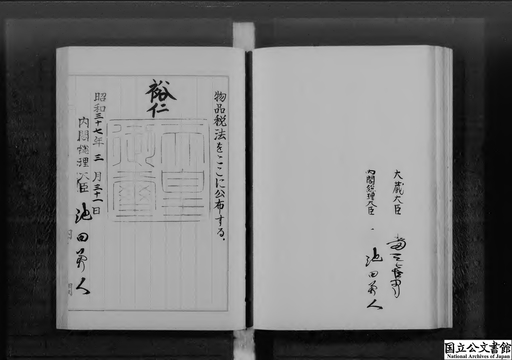 物品税法をここに公布する。
裕仁
天皇御璽
昭和三十七年三月三十一日
内閣総理大臣 池田勇人
大蔵大臣
内閣総理大臣 池田勇人
国立公文書館
National Archives of Japan